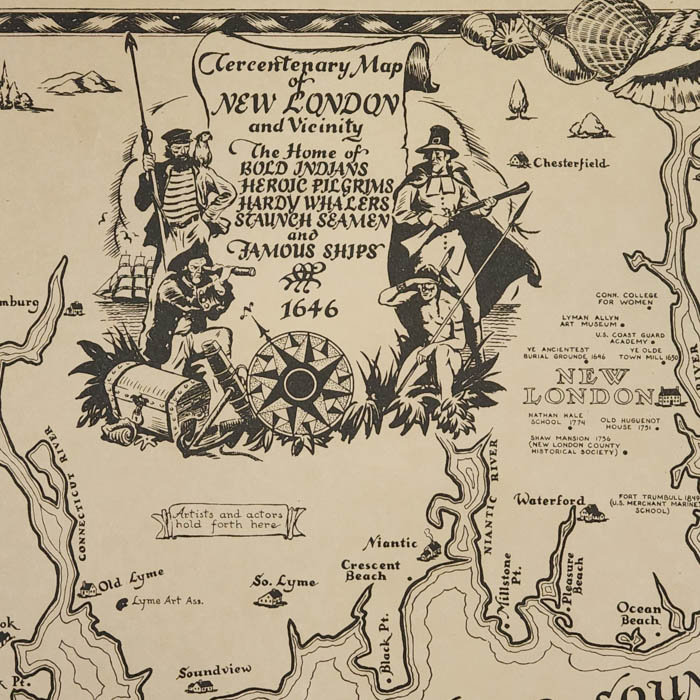 Tercentenary Map
of
NEW LONDON
and Vicinity
The Home of
BOLD INDIANS
HEROIC PILGRIMS
HARDY WHALERS
STAUNCH SEAMEN
and
FAMOUS SHIPS
1646
N
Chesterfield
CONN. COLLEGE
FOR WOMEN
LYMAN ALLYN
ART MUSEUM
U.S. COAST GUARD
ACADEMY
YE ANCIENTEST
BURIAL GROUNDE 1646
YE OLDE
TOWN MILL 1650
NEW
LONDON
NATHAN HALE
SCHOOL 1774
OLD HUGUENOT
HOUSE 1751
SHAW MANSION 1756
(NEW LONDON COUNTY
HISTORICAL SOCIETY)
RIVER
mburg
CONNECTICUT RIVER
NIANTIC RIVER
Artists and actors
hold forth here
Waterford
FORT TRUMBULL (1849
(U.S. MERCHANT MARINE
SCHOOL)
Niantic
Crescent
Beach
Old Lyme
Lyme Art Ass.
So. Lyme
Millstone
Pt.
Pleasure
Beach
Ocean
Beach
Black Pt.
ok
Soundview
k Pt.